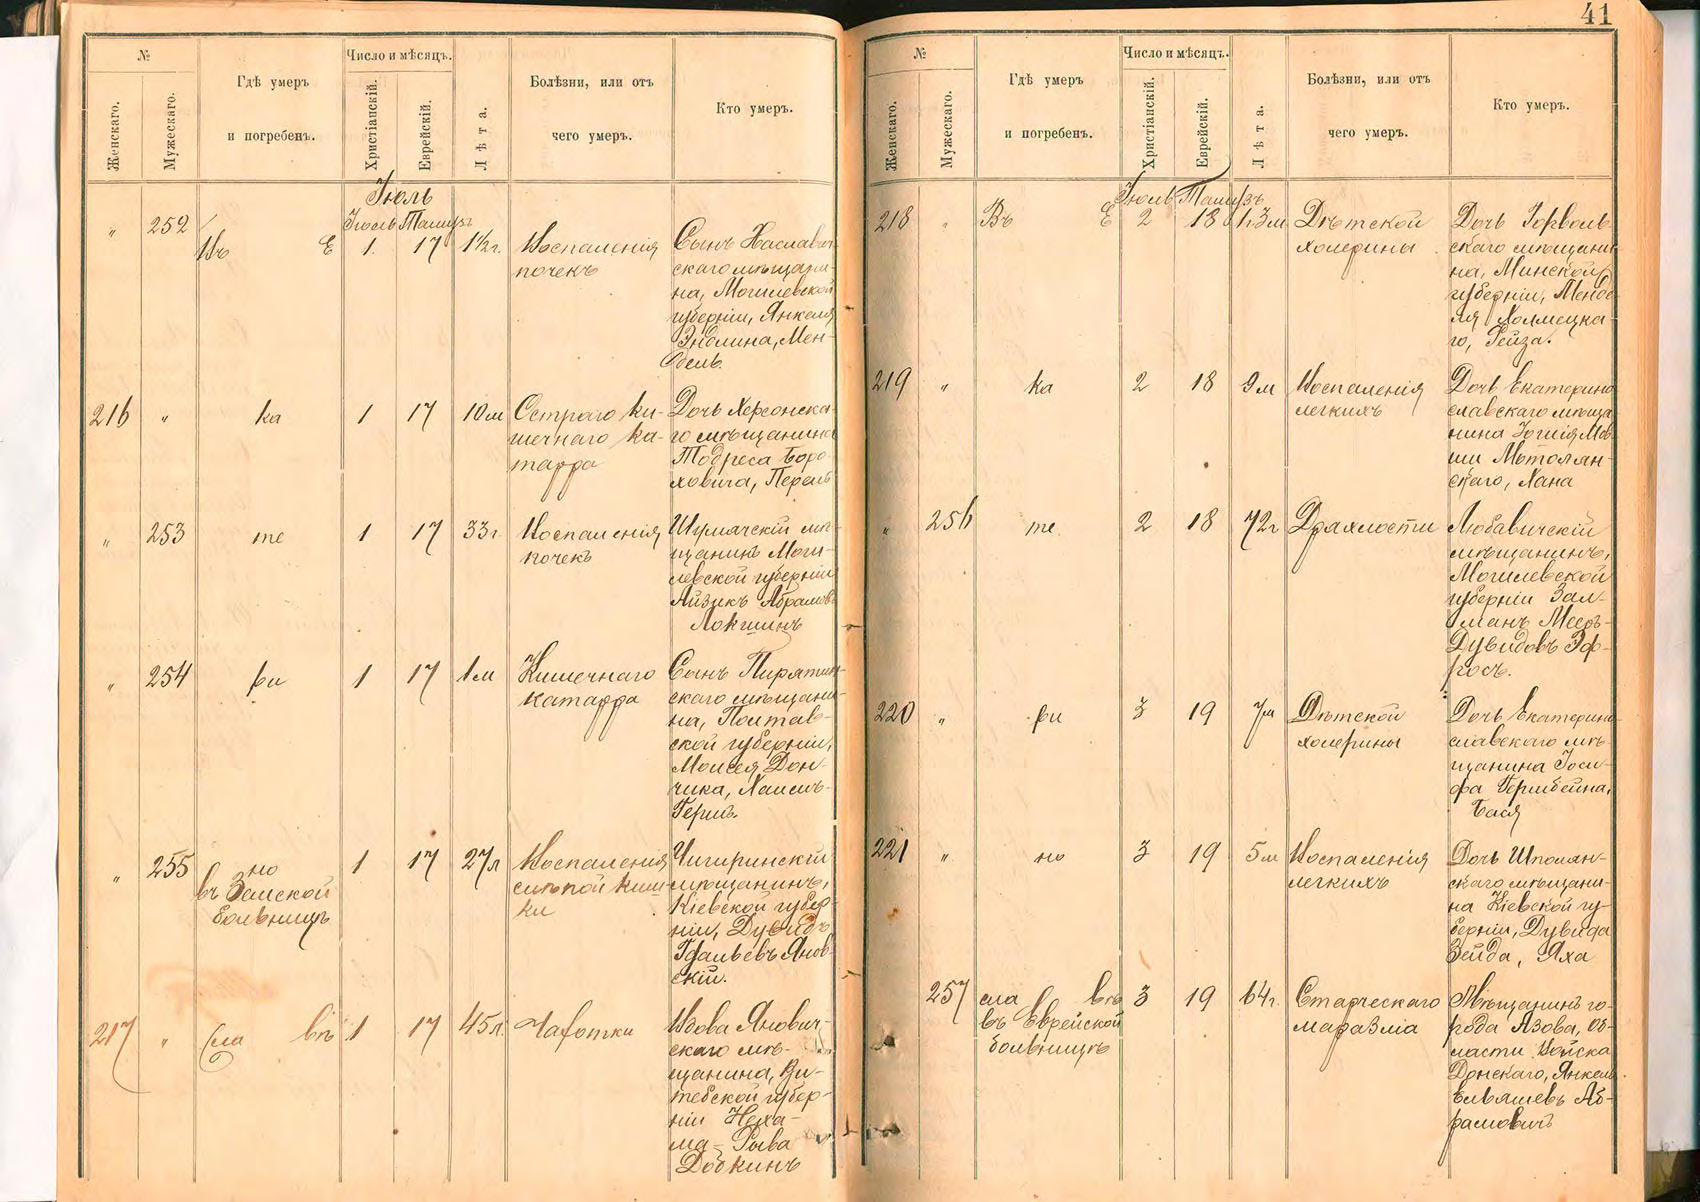 41
№
Женскаго.
Мужескаго.
Гдѣ умеръ
и погребенъ.
Число и мѣсяцъ.
Христіанскій.
Еврейскій.
Лѣта.
Болѣзни, или отъ
чего умеръ.
Кто умеръ.
Іюль
Іюль Тамузъ
" 252 Въ Е 1. 17 1½г. Воспаленія
почекъ
Сынъ Хославич-
скаго мѣщани-
на, Могилевской
губерніи, Янкеля
Эйдлина, Мен-
дель.
216 " ка 1 17 10м Остраго ки-
шечнаго ка-
тарра
Дочь Херсонска-
го мѣщанина
Тодреса Боро-
ховича, Перль
" 253 те 1 17 33г Воспаленія
почекъ
Шумячскій мѣ-
щанинъ Моги-
левской губерніи
Айзикъ Абрамовъ
Локшинъ
" 254 ри 1 17 1м Кишечнаго
катарра
Сынъ Пирятин-
скаго мѣщани-
на, Полтав-
ской губерніи,
Моисея Дон-
чика, Хаимъ-
Гершъ.
" 255 но
въ Земской
больницѣ
1 17 27л Воспаленія
слѣпой киш-
ки
Чигиринскій
мѣщанинъ,
Кіевской губер-
ніи, Дувидъ
Янов-
скій.
217 " сла вѣ 1 17 45л. Чахотки
Вдова Янович-
скаго мѣ-
щанина, Ви-
тебской губер-
ніи Неха-
ма-Рыва
Добкинъ
№
Женскаго.
Мужескаго.
Гдѣ умеръ
и погребенъ.
Число и мѣсяцъ.
Христіанскій.
Еврейскій.
Лѣта.
Болѣзни, или отъ
чего умеръ.
Кто умеръ.
Іюль Тамузъ
218 " Въ Е 2 18 1.3м Дѣтской
холерины
Дочь Горволь-
скаго мѣщани-
на, Минской
губерніи, Менде-
ля Холмецка-
го, Гейза.
219 " ка 2 18 9м Воспаленія
легкихъ
Дочь Екатерино
славскаго мѣща
нина
скаго, Хана
" 256 те 2 18 72г Дряхлости
Любавичскій
мѣщанинъ,
Могилевской
губерніи Зал-
манъ Мееръ-
Дувидовъ Эф-
росъ.
220 " ри 3 19 7м Дѣтской
холерины
Дочь Екатерино-
славскаго мѣ-
щанина Іоси-
фа Гершбейна,
Бася
221 " но 3 19 5м Воспаленія
легкихъ
Дочь Шполян-
скаго мѣщани-
на Кіевской гу-
берніи, Дувида
Зейда, Яха
257 сла вѣ
въ Еврейской
больницѣ
3 19 64г. Старческаго
маразміа
Мѣщанинъ го-
рода Азова, Об-
ласти Войска
Донскаго, Янкель
Ельяшевъ Аб-
рамовичъ